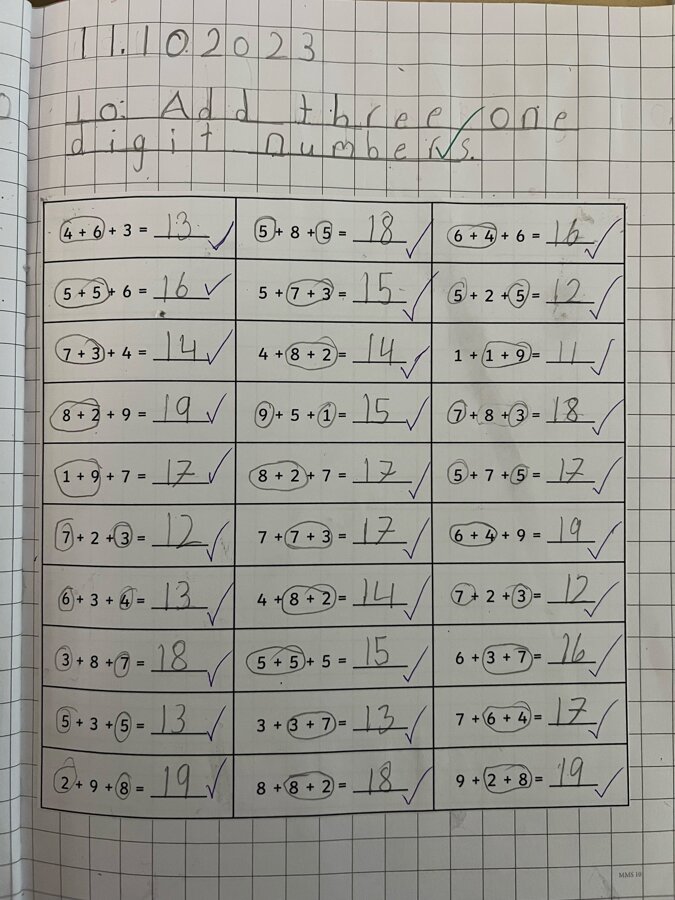 11.10.2023
Lo: Add three one
digit numbers.
4 + 6 + 3 = 13 5 + 8 + 5 = 18 6 + 4 + 6 = 16
5 + 5 + 6 = 16 5 + 7 + 3 = 15 5 + 2 + 5 = 12
7 + 3 + 4 = 14 4 + 8 + 2 = 14 1 + 1 + 9 = 11
8 + 2 + 9 = 19 9 + 5 + 1 = 15 7 + 8 + 3 = 18
1 + 9 + 7 = 17 8 + 2 + 7 = 17 5 + 7 + 5 = 17
7 + 2 + 3 = 12 7 + 7 + 3 = 17 6 + 4 + 9 = 19
6 + 3 + 4 = 13 4 + 8 + 2 = 14 7 + 2 + 3 = 12
3 + 8 + 7 = 18 5 + 5 + 5 = 15 6 + 3 + 7 = 16
5 + 3 + 5 = 13 3 + 3 + 7 = 13 7 + 6 + 4 = 17
2 + 9 + 8 = 19 8 + 8 + 2 = 18 9 + 2 + 8 = 19
MMS 10